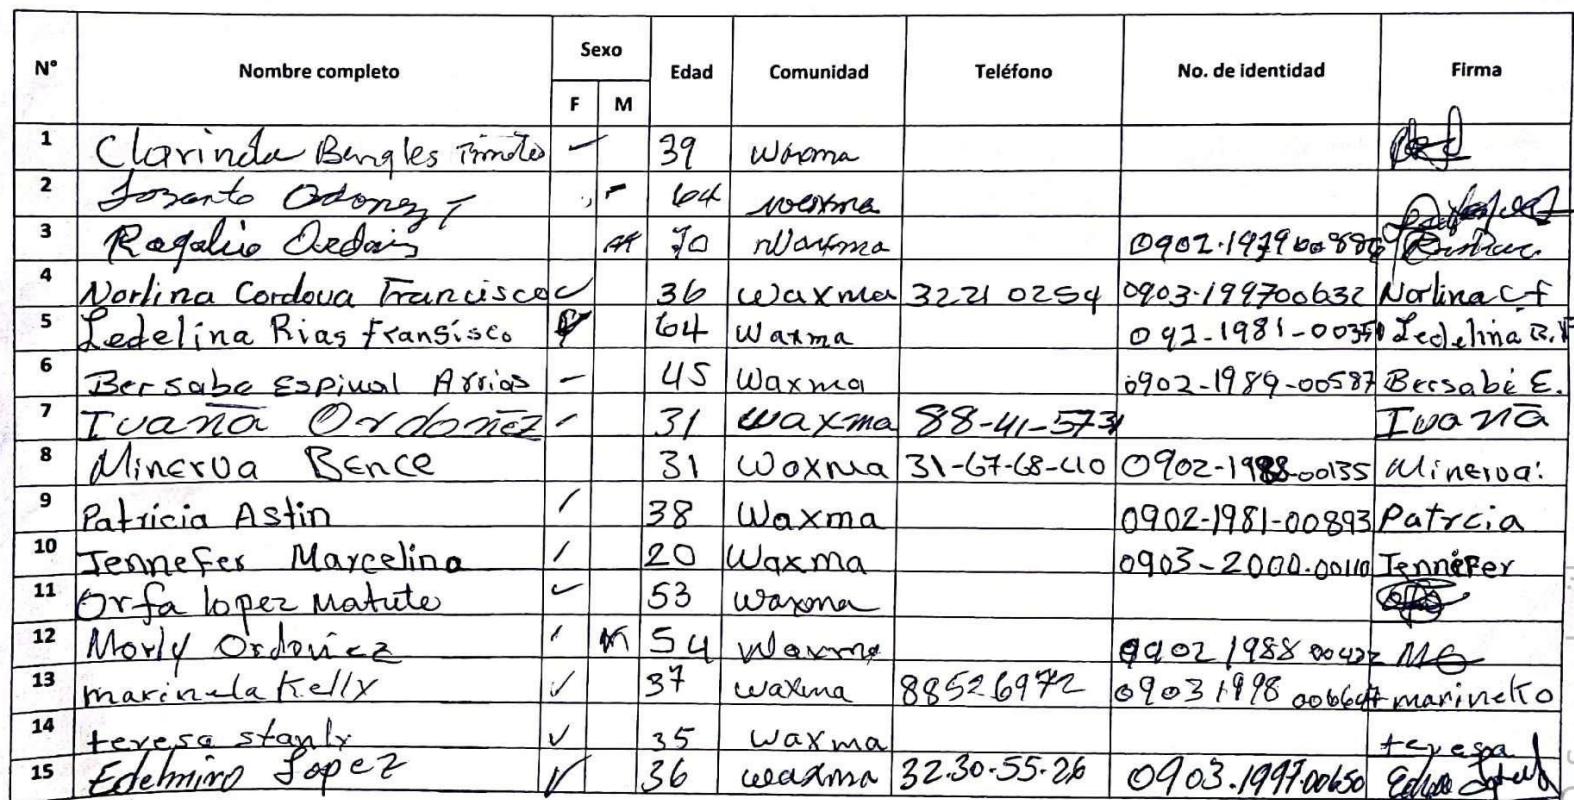 N° Nombre completo Sexo F M Edad Comunidad Teléfono No. de identidad Firma
1 Clarinda Bengles 39 Waxma
2 64 Waxma
3 Rogalio 70 Waxma
4 Norlina Cordova Francisco 36 Waxma 3221 0254 0903-199700632 Norlina C F
5 Ledelina Rias Fransisco F 64 Waxma Ledelina R. F
6 Bersabe Espinal Arrias 45 Waxma 0902-1989-00587 Bersabé E.
7 Ivana Ordoñez 31 Waxma Ivana
8 Minerva Bence 31 Woxma 31-67-68-40 0902-1988-00135 Minerva.
9 Patricia Astin 38 Waxma 0902-1981-00893 Patrcia
10 Jennefer Marcelino 20 Waxma 0903-2000-00110 Jennefer
11 Orfa lopez Matute 53 Waxma
12 M 54 Waxma
13 marinela Kelly 37 waxma 88526972 marineKo
14 teresa stanly 35 waxma teresa
15 Edelmiro Lopez 36 waxma 32-30-55-26 0903.1997.00650